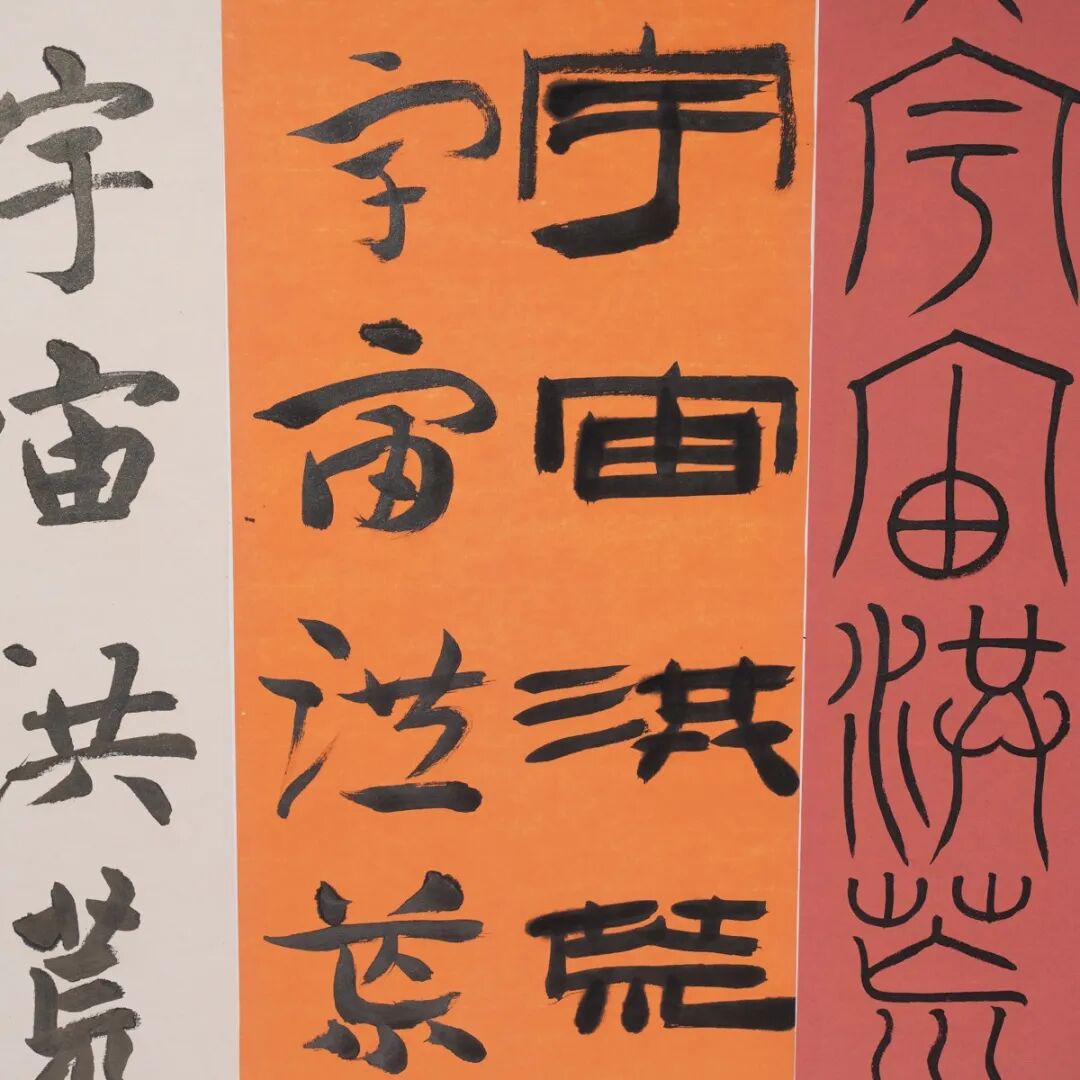 宇宙洪荒
宇宙洪荒
宇宙洪荒
宇宙洪荒